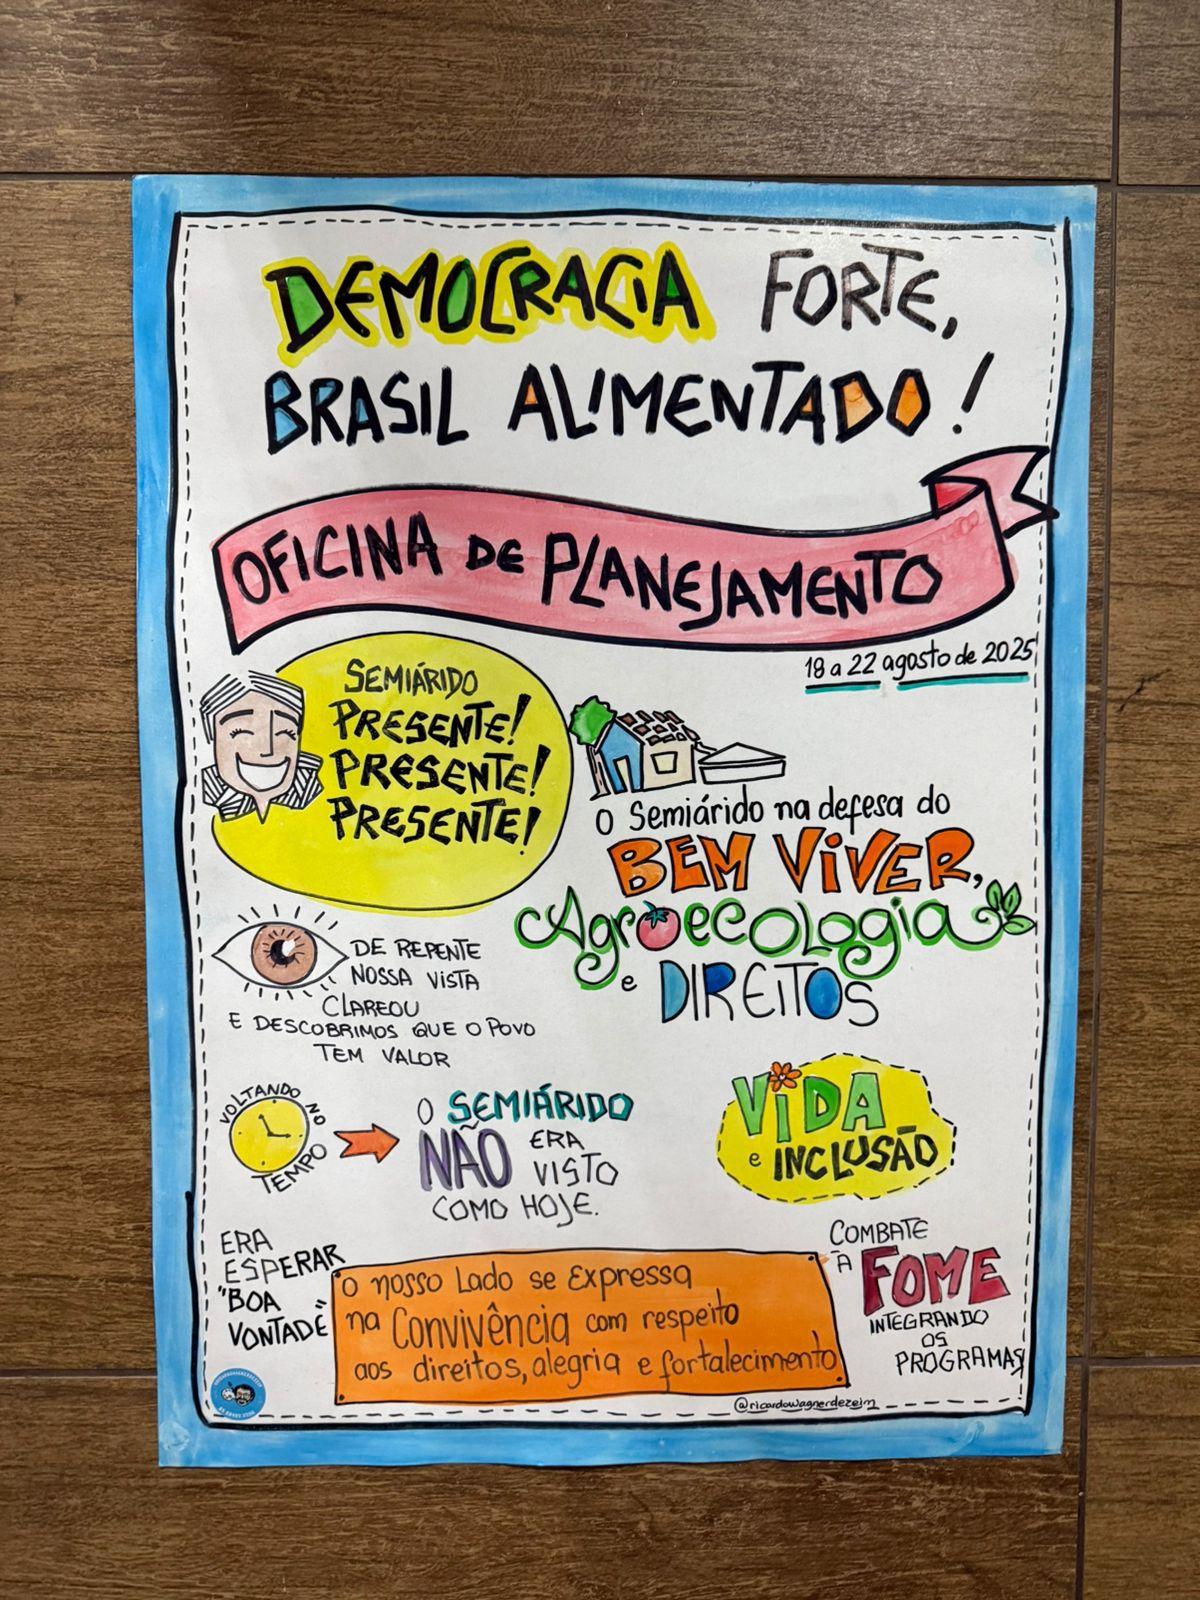 DEMOCRACIA FORTE,
BRASIL ALIMENTADO!
OFICINA DE PLANEJAMENTO
18 a 22 agosto de 2025
SEMIÁRIDO
PRESENTE!
PRESENTE!
PRESENTE!
O Semiárido na defesa do
BEM VIVER,
Agroecologia
e DIREITOS
DE REPENTE
NOSSA VISTA
CLAREOU
E DESCOBRIMOS QUE O POVO
TEM VALOR
VOLTANDO NO
TEMPO
O SEMIÁRIDO
NÃO ERA
VISTO
COMO HOJE.
VIDA
e INCLUSÃO
ERA
ESPERAR
"BOA
VONTADE"
O nosso Lado se Expressa
na Convivência com respeito
aos direitos, alegria e fortalecimento
COMBATE
À
FOME
INTEGRANDO
OS
PROGRAMAS
@ricardowagnerdezeim